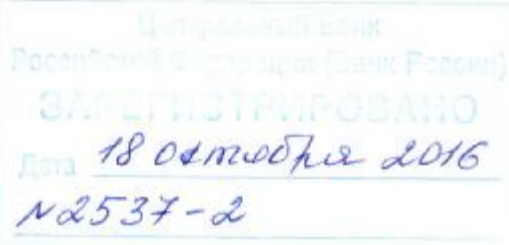 Центральный банк
Российской Федерации (Банк России)
ЗАРЕГИСТРИРОВАНО
Дата 18 октября 2016
№2537-2